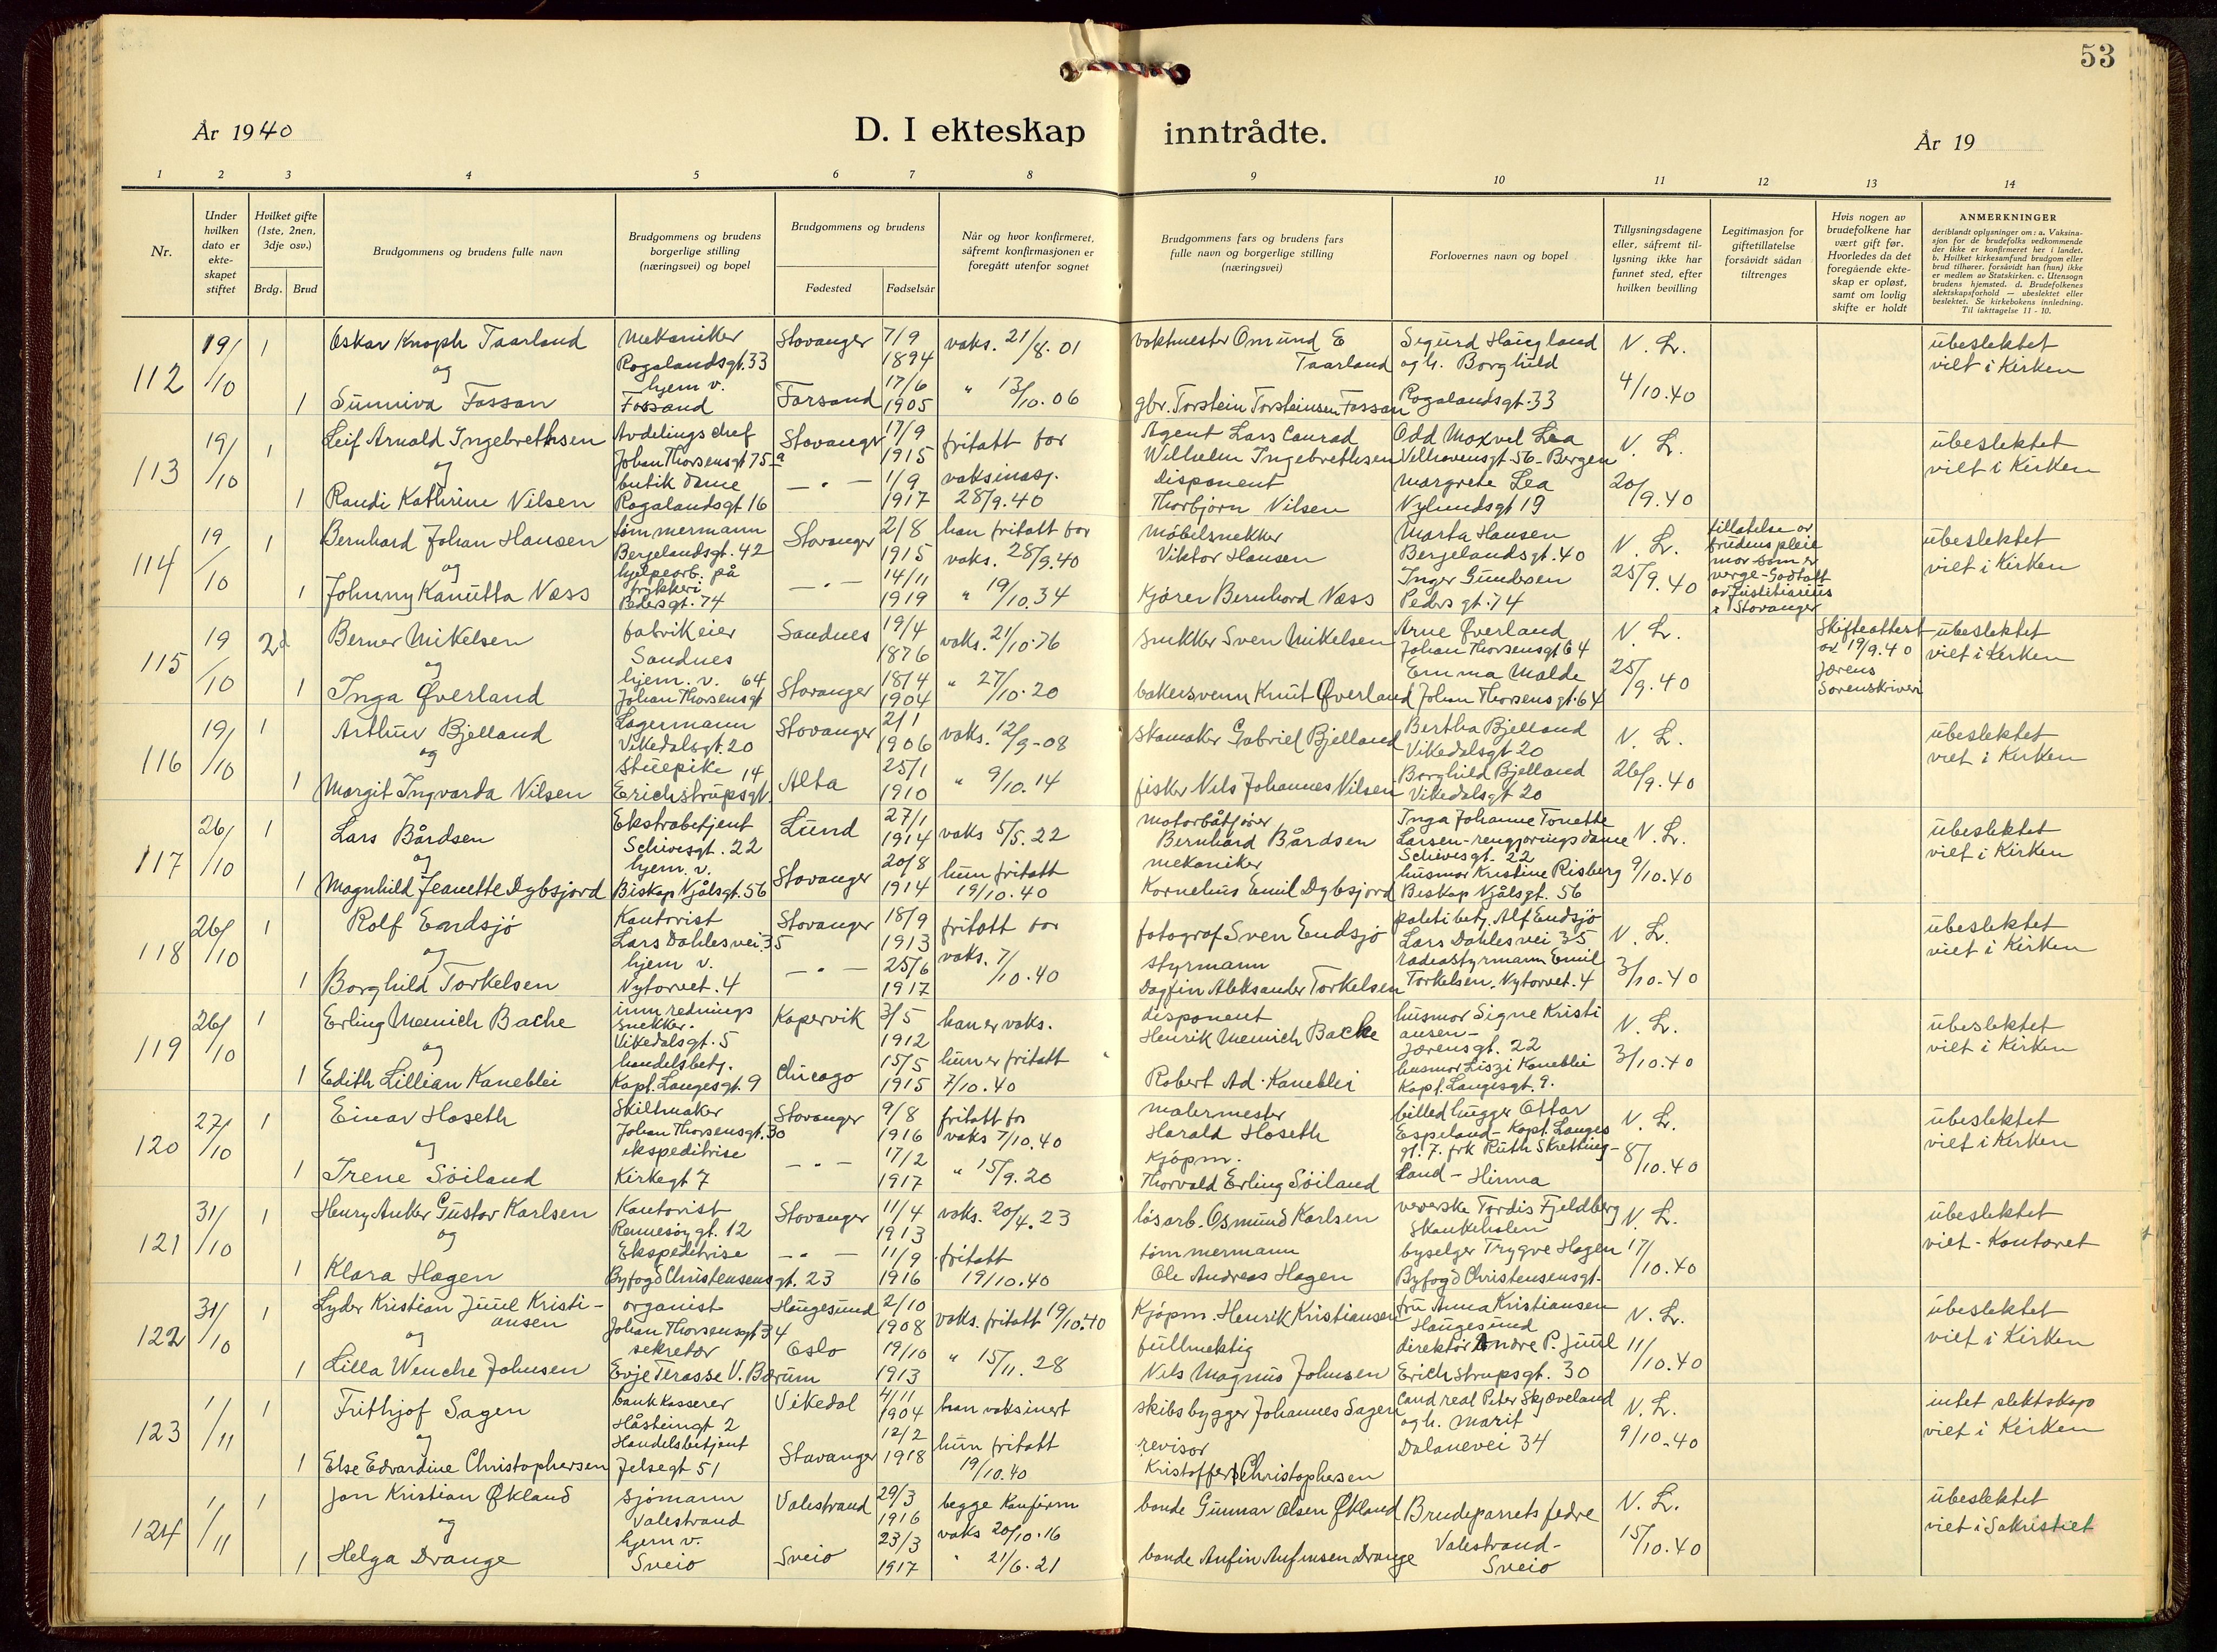 53
År 1940
D. I ekteskap inntrådte.
År 19
1 2 3 4 5 6 7 8 9 10 11 12 13 14
Nr.
Under hvilken dato er ekteskapet stiftet
Hvilket gifte (1ste, 2nen, 3dje osv.)
Brdg. Brud
Brudgommens og brudens fulle navn
Brudgommens og brudens borgerlige stilling (næringsvei) og bopel
Brudgommens og brudens
Fødested
Fødselsår
Når og hvor konfirmeret, såfremt konfirmasjonen er foregått utenfor sognet
Brudgommens fars og brudens fars fulle navn og borgerlige stilling (næringsvei)
Forlovernes navn og bopel
Tillysningsdagene eller, såfremt tillysning ikke har funnet sted, efter hvilken bevilling
Legitimasjon for giftetillatelse forsåvidt sådan tiltrenges
Hvis nogen av brudefolkene har vært gift før. Hvorledes da det foregående ekteskap er opløst, samt om lovlig skifte er holdt
ANMERKNINGER
deriblandt oplysninger om: a. Vaksinasjon for de brudefolks vedkommende der ikke er konfirmeret her i landet. b. Hvilket kirkesamfund brudgom eller brud tilhører, forsåvidt han (hun) ikke er medlem av Statskirken. c. Utensogn brudens hjemsted. d. Brudefolkenes slektskapsforhold — ubeslektet eller beslektet. Se kirkebokens innledning. Til iakttagelse 11 - 10.
112 19/10 1 Oskar Knoph Taarland mekaniker Rogalandsgt. 33 Stavanger 7/9 1894 vaks. 21/8. 01 vaktmester Omund E Taarland Sigurd Haugland og h. Borghild N. L. ubeslektet
og
1 Sunniva Fossan hjem v. Fossand Forsand 17/6 1905 " 13/10. 06 gbr. Torstein Torsteinsen Fossan Rogalandsgt. 33 4/10. 40 viet i Kirken
113 19/10 1 Leif Arnold Ingebrethsen Avdelings chef Johan Thorsensgt 75a Stavanger 17/9 1915 fritatt for Agent Lars Conrad Wilhelm Ingebrethsen Odd Moxvel Lea Velhavensgt 56 - Bergen N. L. ubeslektet
og
1 Randi Kathrine Nilsen butik dame Rogalandsgt 16 — " — 1/9 1917 vaksinasj. 28/9. 40 Disponent Thorbjørn Nilsen Margrete Lea Nylundsgt 19 20/9. 40 viet i Kirken
114 19/10 1 Bernhard Johan Hansen tømmermann Bergelandsgt. 42 Stavanger 2/8 1915 han fritatt for vaks. 28/9. 40 Møbelsnekker Viktor Hansen Marta Hansen Bergelandsgt. 40 N. L. tillatelse av brudens pleiemor som er verge - Godtatt av Justitiarius i Stavanger ubeslektet
og
1 Johnny Kanutta Næss hjelpearb. på trykkeri Pedersgt. 74 — " — 14/11 1919 " 19/10. 34 Kjører Bernhard Næss Inger Gundersen Pedersgt. 74 25/9. 40 viet i Kirken
115 19/10 2d Berner Mikelsen fabrikeier Sandnes Sandnes 19/4 1876 vaks. 21/10. 76 Snekker Sven Mikelsen Arne Øverland Johan Thorsensgt 64 N. L. Skifteattest av 19/9. 40 Jærens Sorenskriveri ubeslektet
og
1 Inga Øverland hjem. v. Johan Thorsensgt 64 Stavanger 18/4 1904 " 27/10. 20 bakersvenn Knut Øverland Emma Malde Johan Thorsensgt. 64 25/9. 40 viet i Kirken
116 19/10 1 Arthur Bjelland Lagermann Vikedalsgt. 20 Stavanger 2/1 1906 vaks. 12/9 - 08 Skomaker Gabriel Bjelland Bertha Bjelland Vikedalsgt 20 N. L. ubeslektet
og
1 Margit Ingvarda Nilsen Stuepike Erichstrupsgt. 14 Alta 25/1 1910 " 9/10. 14 fisker Nils Johannes Nilsen Borghild Bjelland Vikedalsgt 20 26/9. 40 viet i Kirken
117 26/10 1 Lars Bårdsen Ekstrabetjent Schivesgt. 22 Lund 27/1 1914 vaks 5/5. 22 motorbåtfører Bernhard Bårdsen Inga Johanne Tonette Larsen - rengjøringsdame Schivesgt - 22 N. L. ubeslektet
og
1 Magnhild Jeanette Dybsjord hjem. v. Biskop Njålsgt. 56 Stavanger 20/8 1914 hun fritatt 19/10. 40 mekaniker Kornelius Emil Dybsjord husmor Kristine Risberg Biskop Njålsgt. 56 9/10. 40 viet i Kirken
118 26/10 1 Rolf Eendsjø Kontorist Lars Dahles vei 35 Stavanger 18/9 1913 fritatt for fotograf Sven Endsjø politibetj. Alf Endsjø Lars Dahles vei 35 N. L. ubeslektet
og
1 Borghild Torkelsen hjem v. Nytorvet. 4 — " — 25/6 1917 vaks. 7/10. 40 styrmann Dagfin Aleksander Torkelsen radiostyrmann Emil Torkelsen. Nytorvet. 4 3/10. 40 viet i Kirken
119 26/10 1 Erling Meinich Bache innrednings snekker. Vikedalsgt. 5 Kopervik 3/5 1912 han er vaks. disponent Henrik Meinich Bache husmor Signe Kristiansen - Jærensgt. 22 N. L. ubeslektet
og
1 Edith Lillian Kaneblei handelsbetj. Kapt. Langesgt. 9 Chicago 15/5 1915 hun er fritatt 7/10. 40 Robert Ad. Kaneblei husmor Liszi Kaneblei Kapt. Langesgt. 9. 3/10. 40 viet i Kirken
120 27/10 1 Einar Hoseth Skiltmaker Johan Thorsensgt. 30 Stavanger 9/8 1916 fritatt for vaks 7/10. 40 malermester Harald Hoseth billedhugger Ottar Espeland - Kapt. Langes gt. 7. N. L. ubeslektet
og
1 Irene Søiland ekspeditrise Kirkegt 7 — " — 17/2 1917 " 15/9. 20 Kjøpm. Thorvald Erling Søiland frk Ruth Skretting - Land - Hinna 8/10. 40 viet i Kirken
121 31/10 1 Henry Anker Gustav Karlsen Kontorist Rennesøygt. 12 Stavanger 11/4 1913 vaks. 20/4. 23 løsarb. Osmund Karlsen veverske Tordis Fjeldberg Skankeholen N. L. ubeslektet
og
1 Klara Hagen Ekspeditrise Byfogd Christensensgt. 23 — " — 11/9 1916 fritatt 19/10. 40 tømmermann Ole Andreas Hagen byselger Trygve Hagen Byfogd Christensensgt. 17/10. 40 viet - Kontoret
122 31/10 1 Lyder Kristian Juul Kristiansen organist Johan Thorsensgt 34 Haugesund 2/10 1908 vaks. fritatt 19/10. 40 Kjøpm. Henrik Kristiansen fru Anna Kristiansen Haugesund N. L. ubeslektet
og
1 Lilla Wenche Johnsen sekretær Evje Terasse V. Bærum Oslo 19/10 1913 " 15/11. 28 fullmektig Nils Magnus Johnsen direktør Andre P. Juul Erichstrupsgt. 30 11/10. 40 viet i Kirken
123 1/11 1 Frithjof Sagen bankkasserer Håsteinsgt 2 Vikedal 4/11 1904 han vaksinert skibsbygger Johannes Sagen Cand real Peter Skjæveland og h. Marit N. L. intet slektskap
og
1 Else Edvardine Christophersen Handelsbetjent Jelsegt 51 Stavanger 12/2 1918 hun fritatt 19/10. 40 revisor Kristoffer Christophersen Dalanevei 34 9/10. 40 viet i Kirken
124 1/11 1 Jon Kristian Økland sjømann Valestrand Valestrand 29/3 1916 begge konfirm vaks 20/10. 16 bonde Gunnar Olsen Økland Brudeparrets fedre N. L. ubeslektet
og
1 Helga Drange hjem v. Sveio Sveio 23/3 1917 " 21/6. 21 bonde Anfin Anfinsen Drange Valestrand - Sveio 15/10. 40 viet i Sakristiet